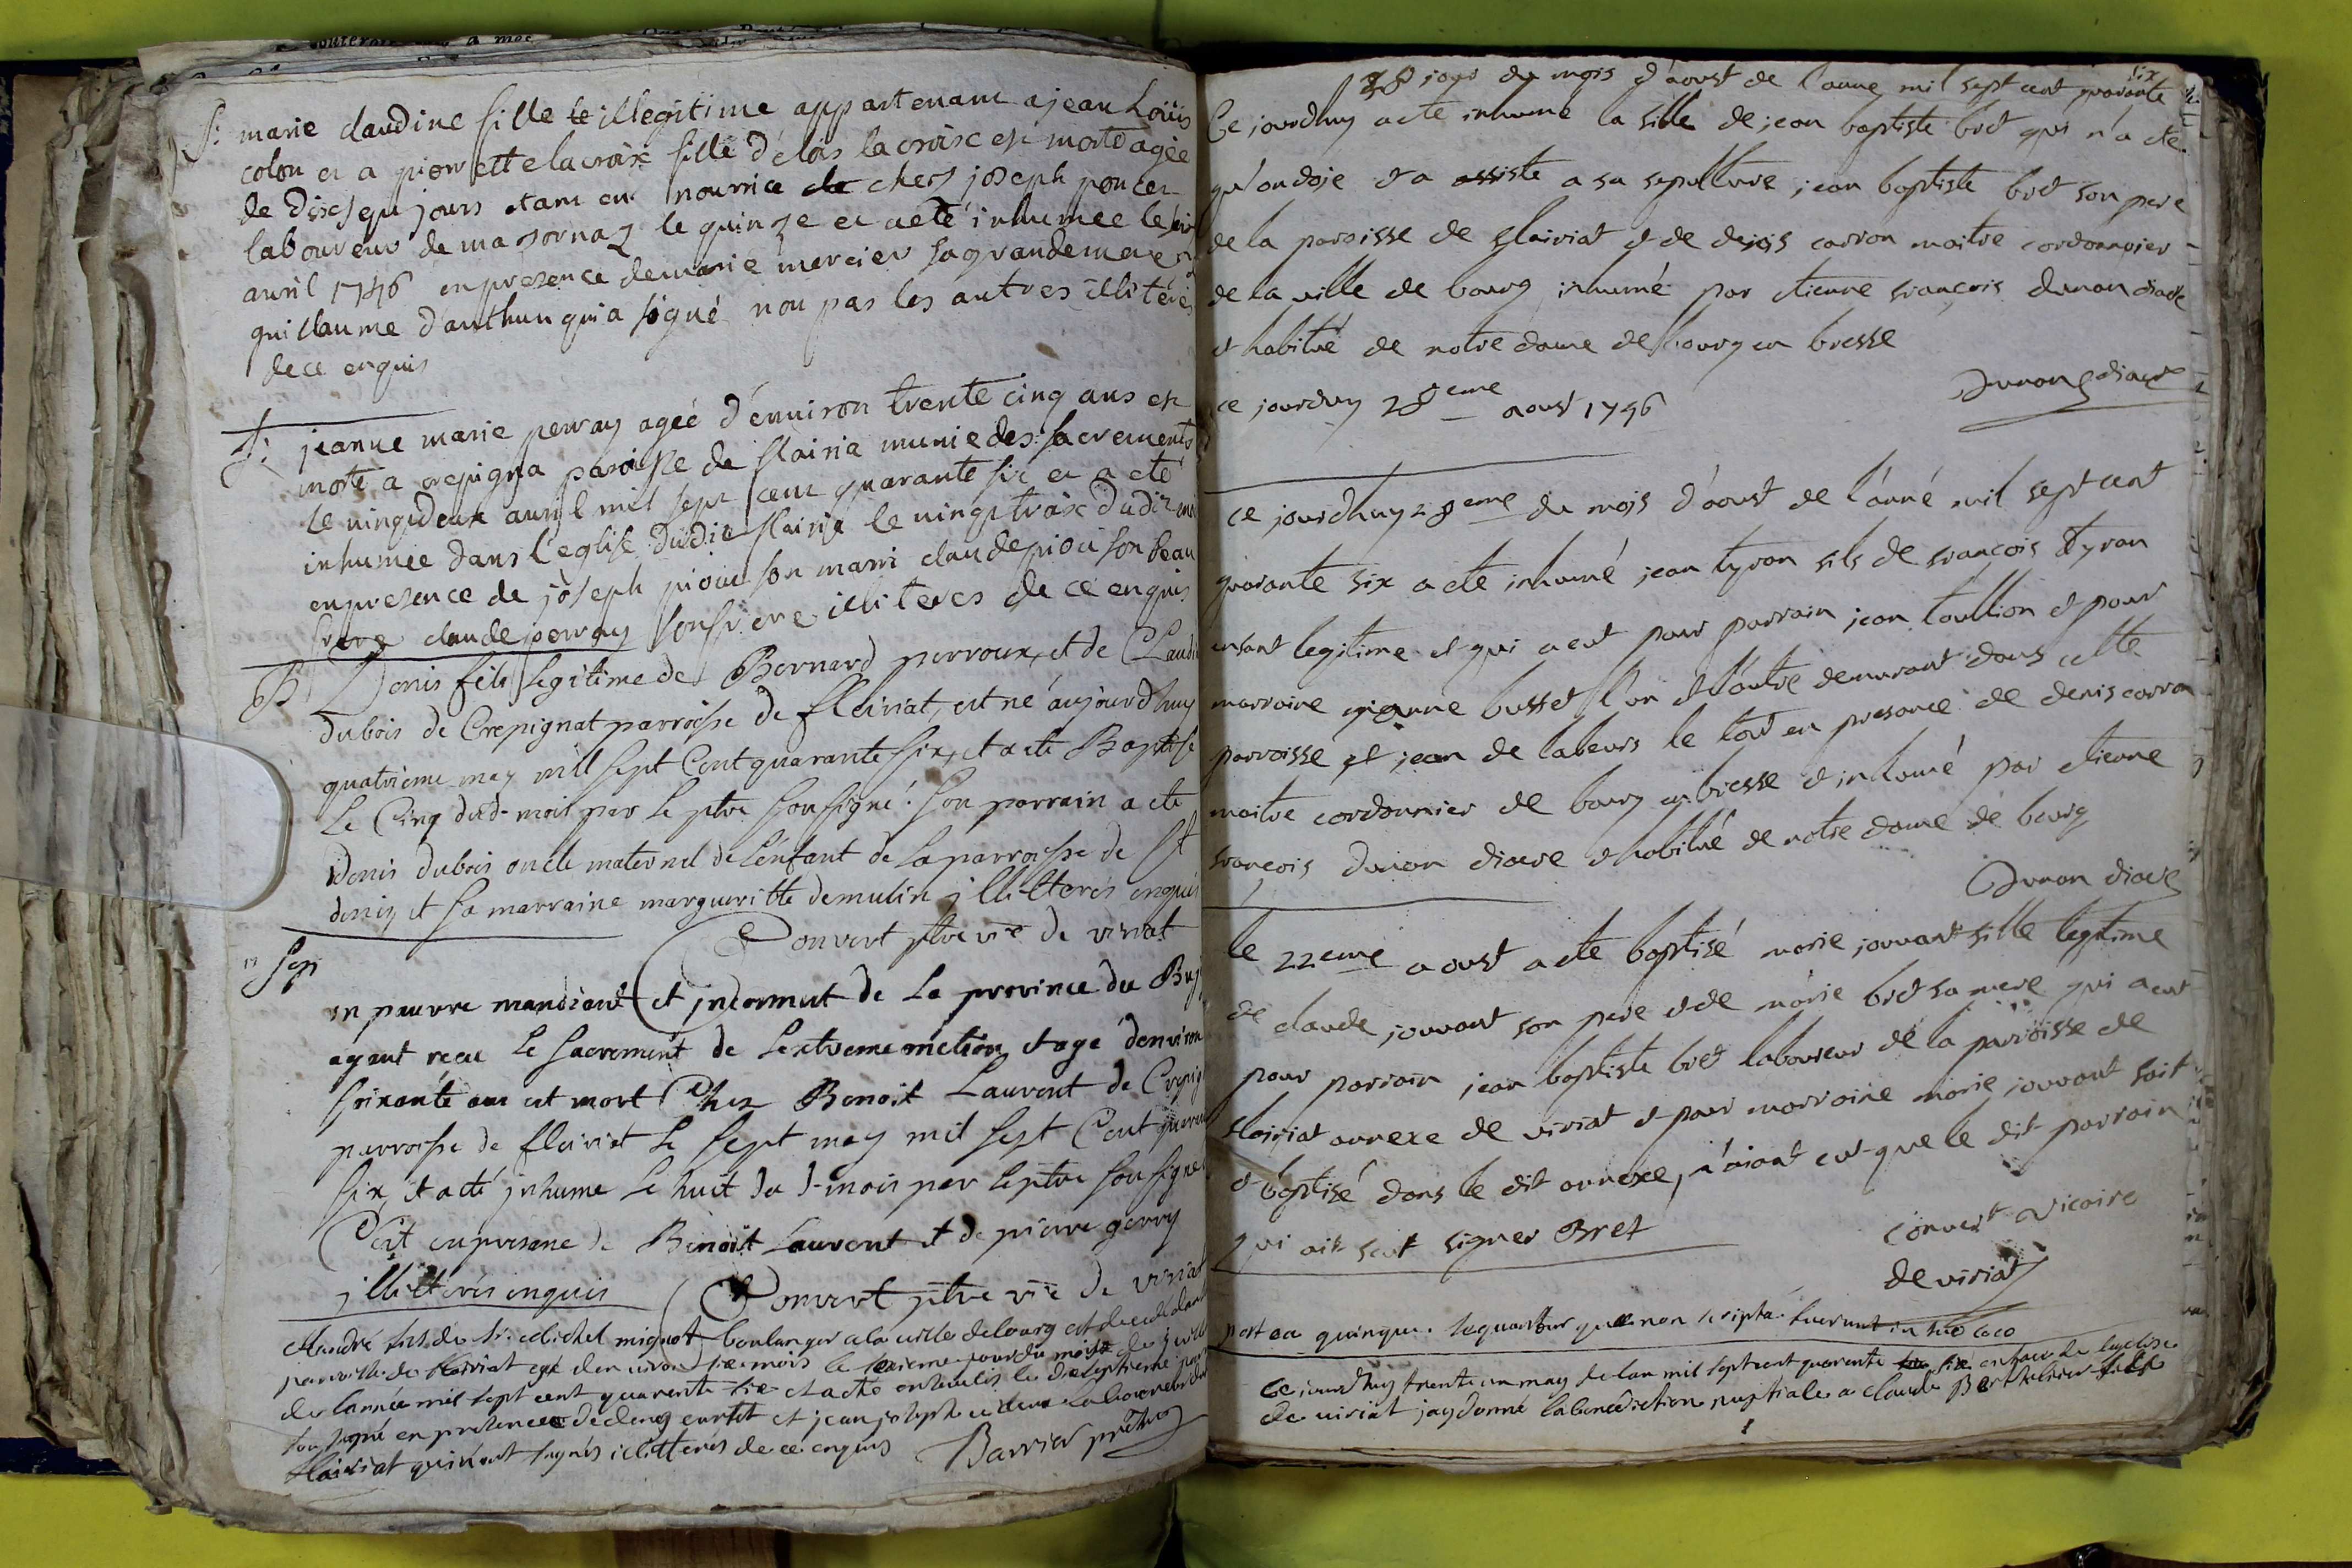 S: marie claudine fille illegitime appartenant a jean Loüis
colon et a pierrette lacroix fille d'elois lacroix est morte agée
de dixsept jours etant en nourrice chers joseph poncet
laboureur de majornaz le quinze et a eté inhumee le
avril 1746 en presence de marie mercier sa grandemere et
guillaume d'anthun qui a signé non pas les autres illitérés
de ce enquis
S: jeanne marie perray ageé d'environ trente cinq ans est
morte a crepigna paroisse de flairia munie des sacrements
le vingtdeux avril mil sept cent quarante six et a eté
inhumée dans l'eglise dudit flairia le vingt trois dudit
en presence de joseph piou son marri claude piou son beau
frere claude perray son frere illiteres de ce enquis
B Denis fils legitime de Bernard perroux, et de Claudi
dubois de Crepignat parroisse de fleiriat, est né aujourd'huy
quatrieme may mill sept Cent quarante six, et a eté Baptisé
le Cinq dud-mois par le ptre soussigné. son parrain a eté
denis dubois oncle maternel de l'enfant de la parroisse de St
denis, et sa marraine margueritte demulin illitterés enquis
Convert ptre vic̃ de viriat
Sep
un pauvre mandiant et inconnut de la province du
ayant reçu le sacrement de l'extreme metion, et agé denviron
soixante ans est mort Chez Benoit Laurent de
parroisse de fleiriat le sept may mil sept Cent
six, et a eté inhume le huit du d-mois par le ptre soussigné
C'est en presence de Benoit Laurent et de pierre
illitterés enquis Convert ptre vic̃ de viriat
André fils de Sr. Michel mignot boulanger a la ville de bourg est decedé dans
parroisse de flairiat agé d'environ six mois le seizieme jour du mois de
de l'année mil sept cent quarante six et a eté enseveli le dixseptieme par
soussigné en presence de et jean joseph laboureur
flairiat qui n'ont signés illitterés de ce enquis Barrier prêtre
28 jour du mois d'aoust de l'anné mil sept cent quarante six
Ce jourdhuy a ete inhumé la fille de jean baptiste bret qui n'a eté
qu'ondojé et a assisté a sa sepulture jean baptiste bret son pere
de la paroisse de flairiat et de denis carron maitre cordonnier
de la ville de bourg inhumé par etienne françois diacre
et habitué de notre dame de bourg en bresse
diacre
ce jourdhuy 28eme aoust 1746
ce jourdhuy 28eme du mois d'aoust de l'anné mil sept cent
quarante six a eté inhumé jean tyron fils de françois tyron
enfant legitime et qui a eut pour parrain jean toullion et pour
marraine busset l'un et l'autre demeurant dans cette
parroisse et jean de labeurs le tout en presance de denis carron
maitre cordonnier de bourg en bresse et inhumé par etienne
françois diacre et habitué de notre dame de bourg
diacre
le 22eme aoust a eté baptisé marie jouvant fille legitime
de claude jouvant son pere et de marie bret sa mere qui a eut
pour parrain jean baptiste bret laboureur de la parroisse de
flairiat annexe de viriat et pour marraine marie jouvant soit
et baptisé dans le dit annexe, n'aiant eut que le dit parrain
qui ait sçut signer Bret
Convert vicaire
de viriat
post ea quinque sequantur quae non scripta fuerunt in suo loco
Ce jourdhuy trente un may de lan mil sept cent quarante six en face de l'eglise
de viriat jay donné la benediction nuptiale a claude Berthelier fils